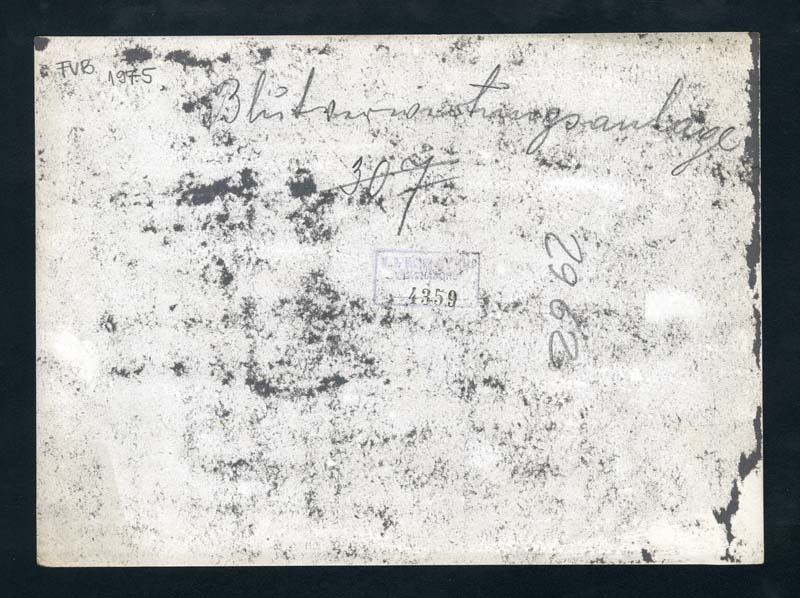 FVB 1975
Blutverwertungsanlage
307
4359
2962